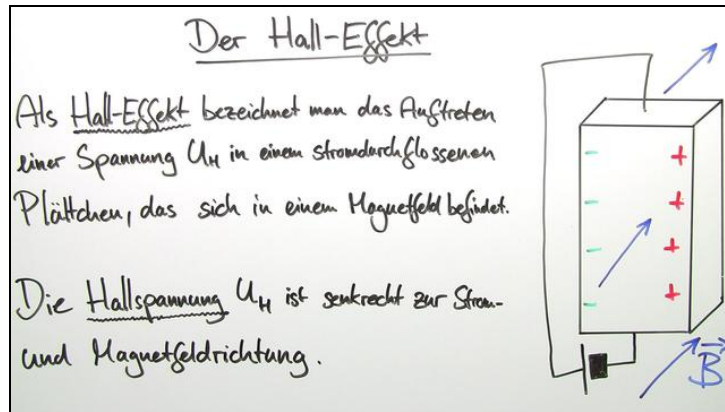 Der Hall-Effekt
Als Hall-Effekt bezeichnet man das Auftreten
einer Spannung U_H in einem stromdurchflossenen
Plättchen, das sich in einem Magnetfeld befindet.
Die Hallspannung U_H ist senkrecht zur Strom-
und Magnetfeldrichtung.
- +
- +
- +
- +
B